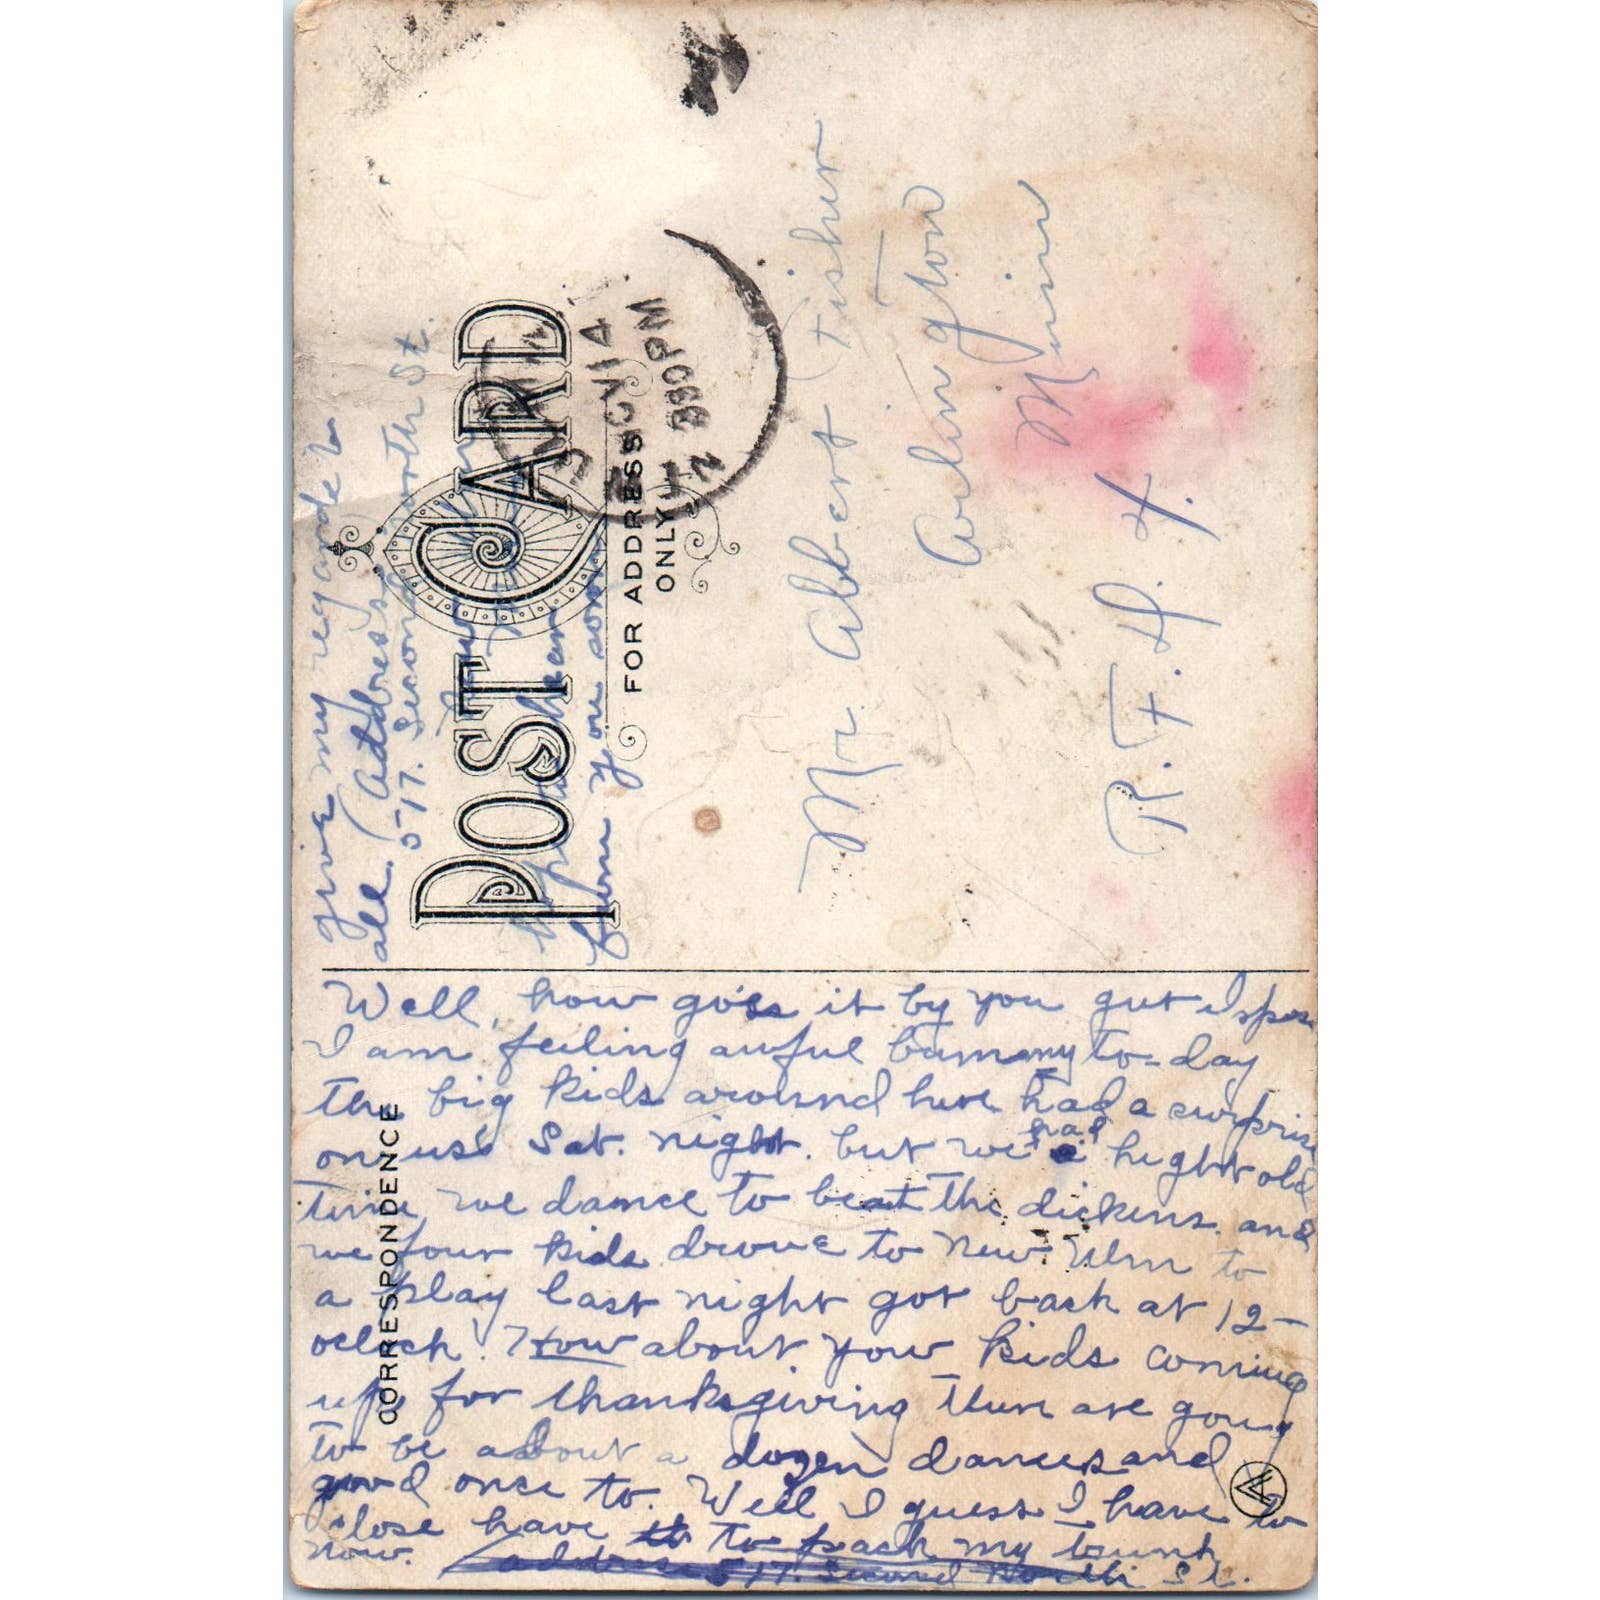 Well, how goes it by you gut I spose
I am feeling awful bummy to-day
The big kids around here had a surprise
on us Sat. night. but we had hight old
time we dance to beat the dickens. and
we four kids drove to New Ulm to
a play last night got back at 12-
oclock. How about your kids coming
up for thanksgiving there are going
to be about a dozen dances and
good once to. Well I guess I have to
close have to pack my trunk
now.
address 517. Second North St.
CORRESPONDENCE
give my regards to
all. (Address
517. Second North St.
POST CARD
hear
from you soon
FOR ADDRESS
ONLY
14
330PM
Mr. Albert Fisher
Arlington
Minn
R. F. D. 4.